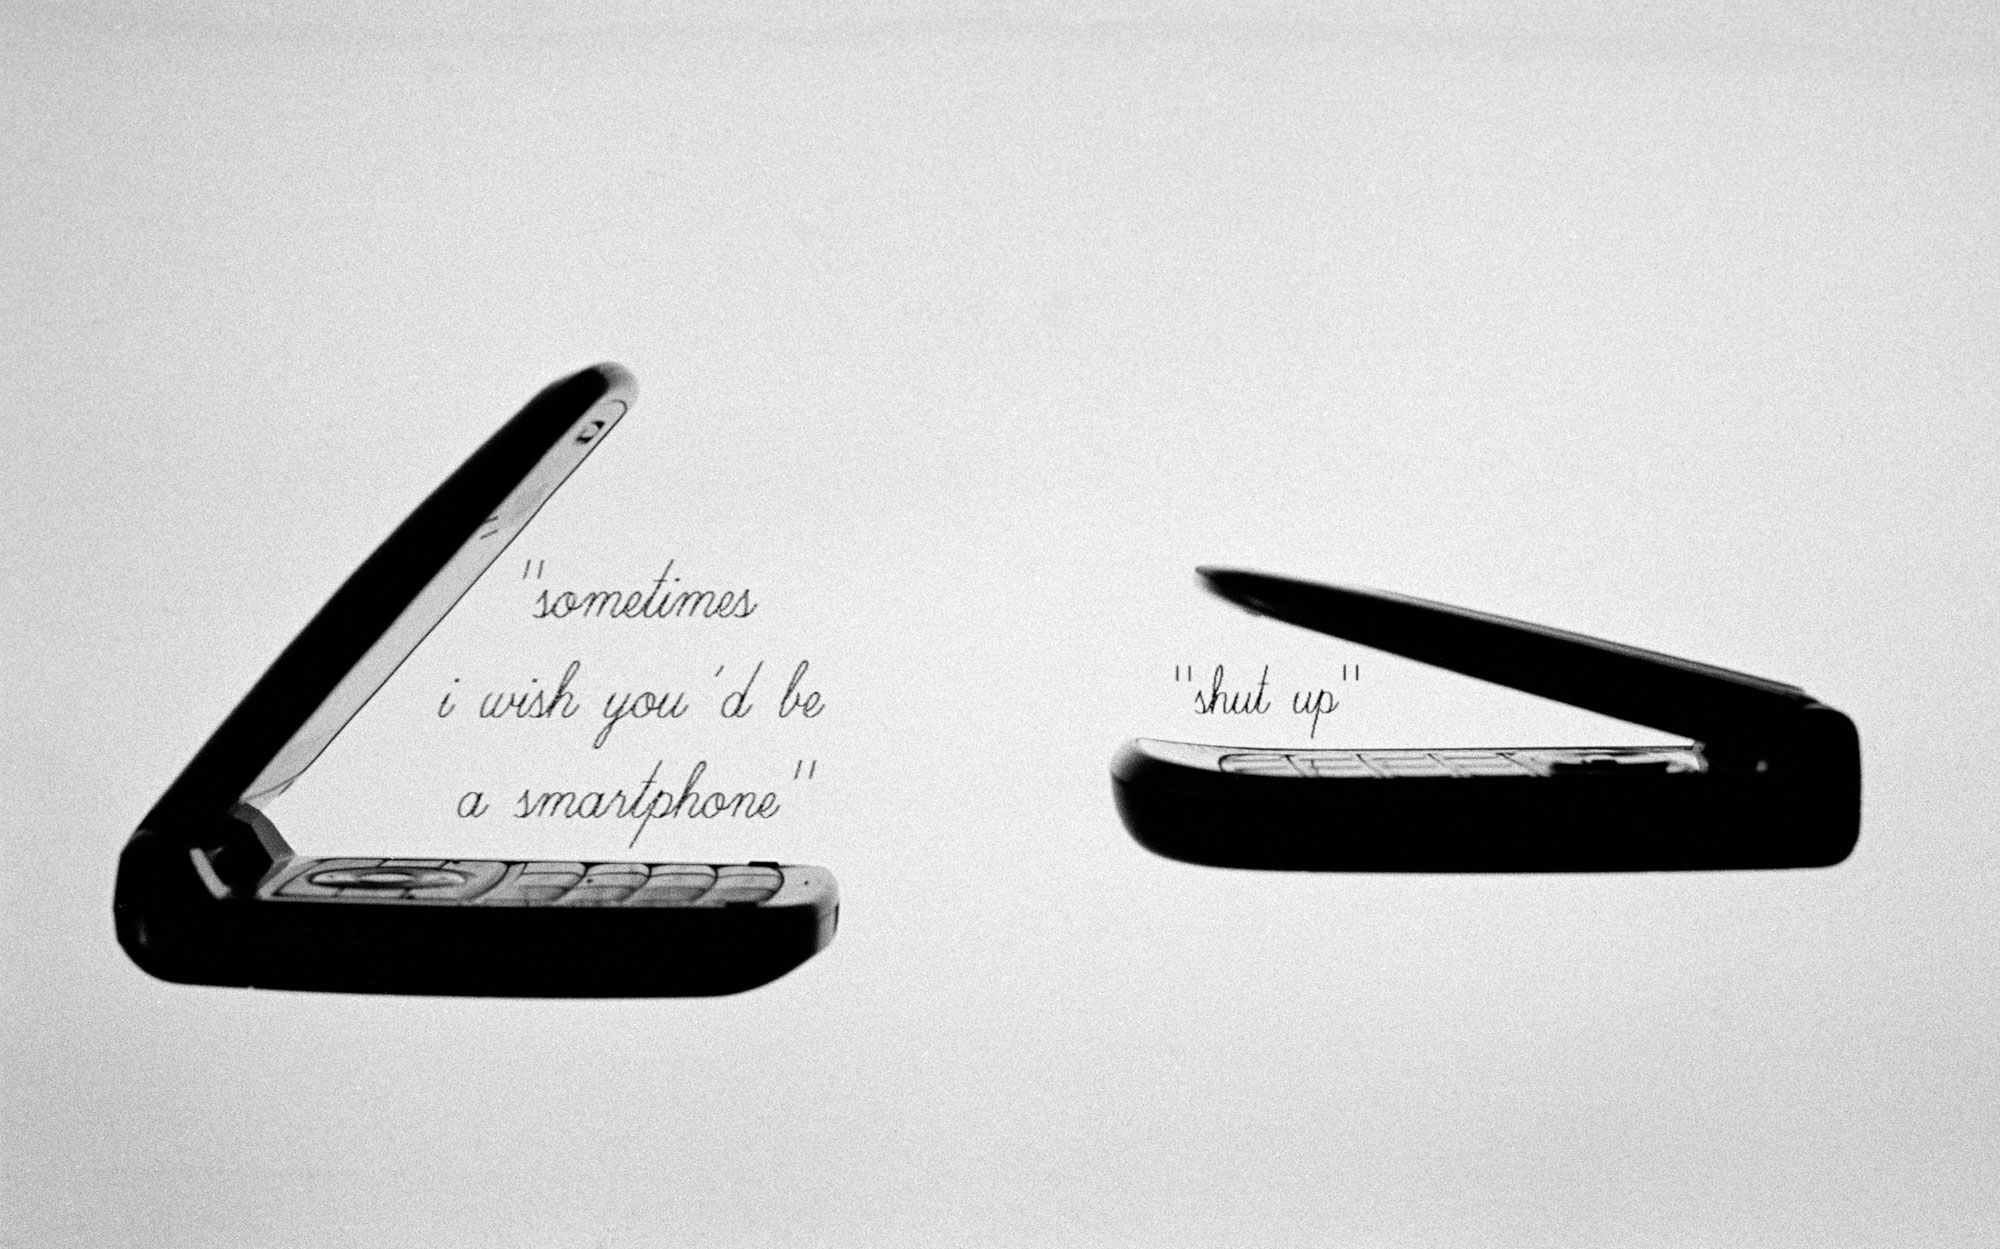 "sometimes
i wish you'd be
a smartphone"
"shut up"